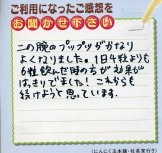 ご利用になったご感想を
お聞かせ下さい
この腕のプップツがかなり
よくなりました。1日4粒よりも
6粒飲んだ時の方が効果が
はっきりでました！これからも
続けようと思っています。
（にんにく玉本舗・社長宛行き）